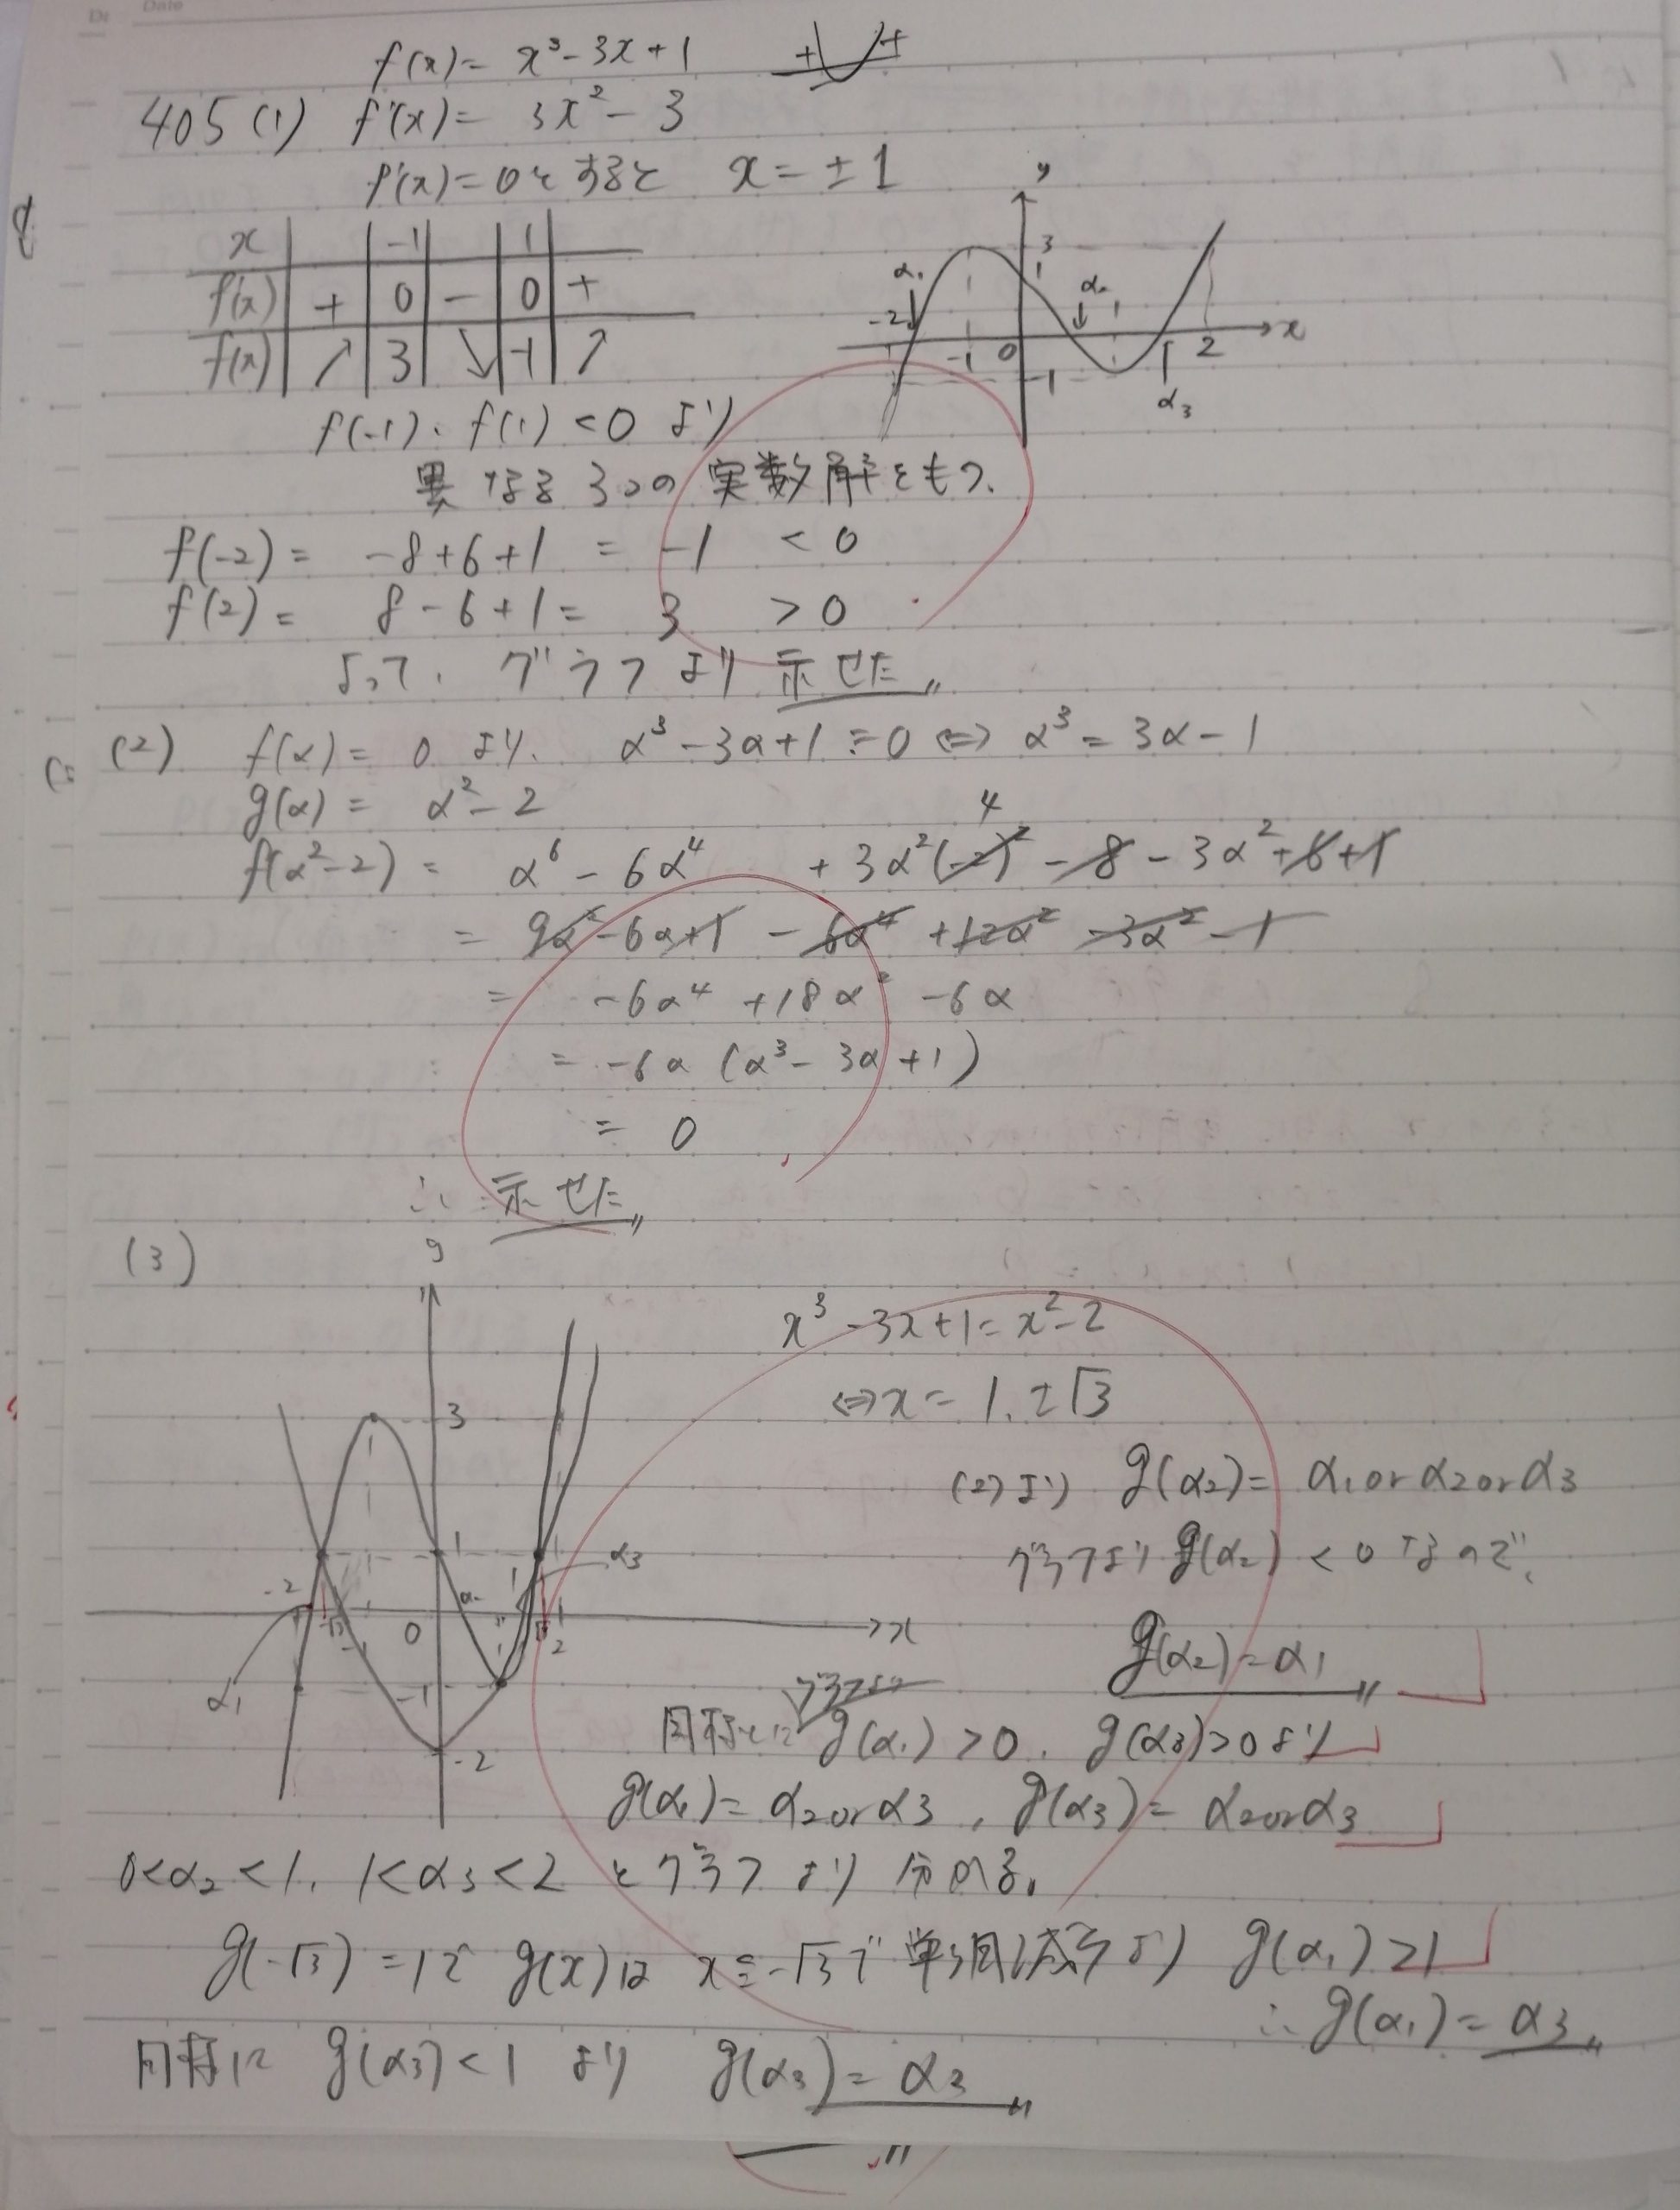 Date
f(x) = x³ - 3x + 1
+ +
405 (1) f'(x) = 3x² - 3
f'(x) = 0とすると x = ±1
x -1 1
f'(x) + 0 - 0 +
f(x) ↗ 3 ↘ -1 ↗
y 3 1 α₁ α₂ 1 -2 -1 0 2 x -1 α₃
f(-1)・f(1) < 0 より
異なる3つの実数解をもつ.
f(-2) = -8+6+1 = -1 < 0
f(2) = 8-6+1 = 3 > 0
よって、グラフより 示せた〃
(2) f(α) = 0 より、 α³-3α+1=0 ⇔ α³ = 3α-1
g(α) = α²-2
f(α²-2) = α⁶ - 6α⁴ + 3α²(-2)² 4 - 8 - 3α² + 6 + 1
= 9α² - 6α + 1 - 6α⁴ + 12α² - 3α² - 1
= -6α⁴ + 18α² - 6α
= -6α (α³ - 3α + 1)
= 0
∴ 示せた〃
(3)
y 3 1 α₃ -2 -√3 -1 0 α₂ 1 √3 2 x α₁ -1 -2
x³ - 3x + 1 = x² - 2
⇔ x = 1, ±√3
(2)より g(α₂) = α₁ or α₂ or α₃
グラフより g(α₂) < 0 なので、
g(α₂) = α₁〃
グラフより
同様に g(α₁) > 0, g(α₃) > 0 より
g(α₁) = α₂ or α₃ , g(α₃) = α₂ or α₃
0<α₂<1, 1<α₃<2 とグラフより 分かる。
g(-√3) = 1で g(x)は x≦-√3で 単調減少より g(α₁) > 1
∴ g(α₁) = α₃〃
同様に g(α₃) < 1 より g(α₃) = α₂〃